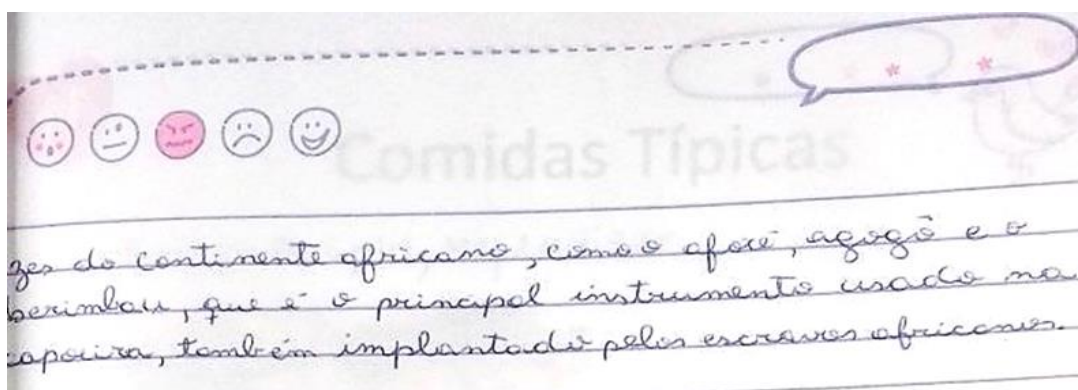 Comidas Típicas
zes do continente africano, como o afoxé, agogô e o
berimbau, que é o principal instrumento usado na
capoeira, também implantado pelos escravos africanos.